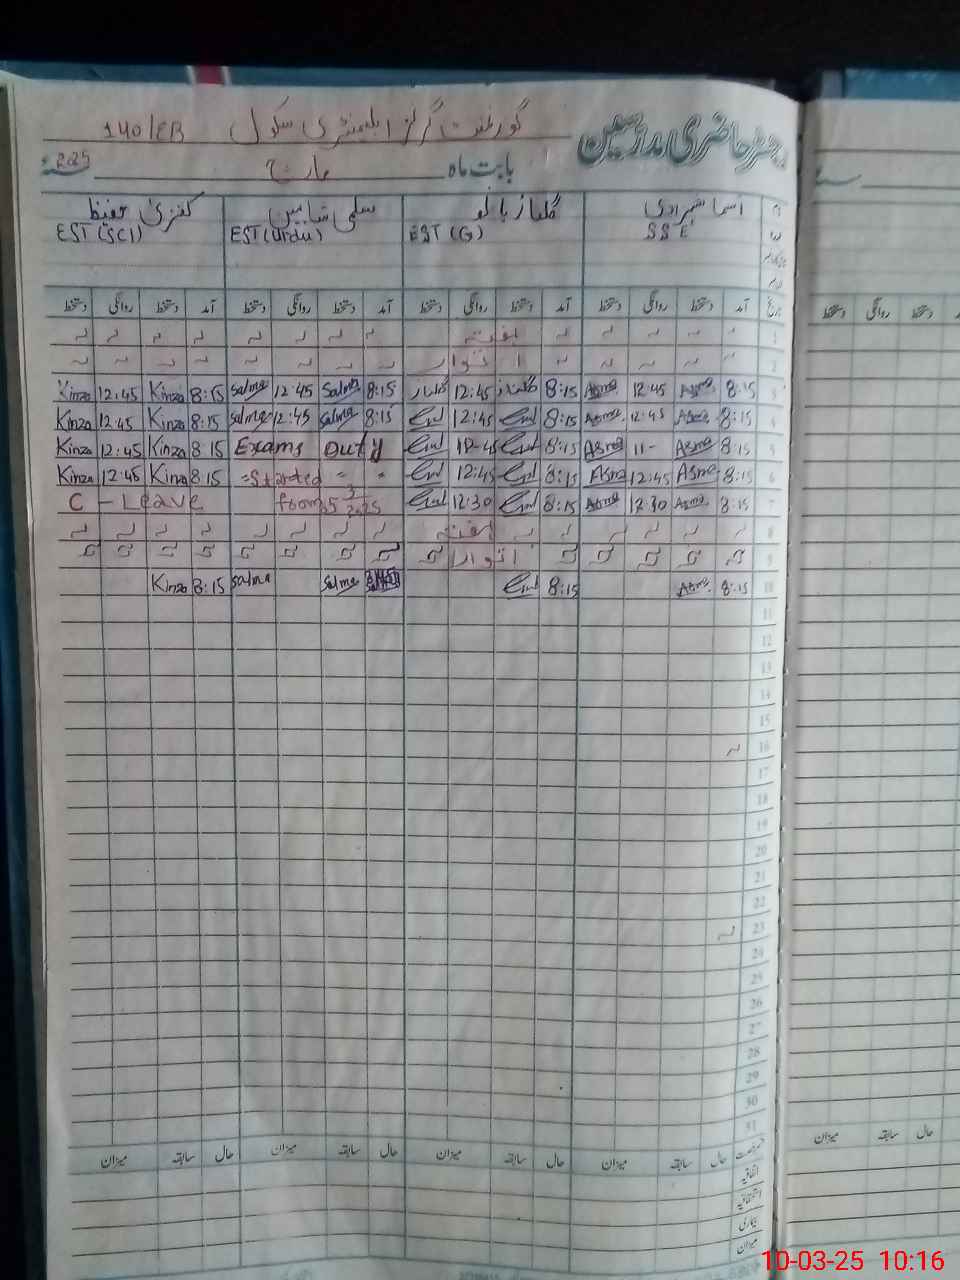 رجسٹر حاضری مدرسین گورنمنٹ گرلز ایلیمنٹری سکول 140/EB
بابت ماہ مارچ 2025
اسما شہزادی گلناز بانو سلمی شاہین کنزی حفیظ
SSE EST (G) EST (Urdu) EST (SCI)
تاریخ آمد دستخط روانگی دستخط آمد دستخط روانگی دستخط آمد دستخط روانگی دستخط آمد دستخط روانگی دستخط
1 ہفتہ
2 اتوار
3 8:15 Asma 12:45 Asma 8:15 گلناز 12:45 گلناز 8:15 Salma 12:45 Salma 8:15 Kinza 12:45 Kinza
4 8:15 Asma 12:45 Asma 8:15 12:45 8:15 Salma 12:45 Salma 8:15 Kinza 12:45 Kinza
5 8:15 Asma 11- Asma 8:15 12-45 Exams Duty 8:15 Kinza 12:45 Kinza
6 8:15 Asma 12:45 Asma 8:15 12:45 =Started " " 8:15 Kinza 12:45 Kinza
7 8:15 Asma 12:30 Asma 8:15 12:30 from 5 3/2025 C - Leave
8 ہفتہ
9 اتوار
10 8:15 Asma 8:15 Salma Salma 8:15 Kinza
11
12
13
14
15
16
17
18
19
20
21
22
23
24
25
26
27
28
29
30
31
رخصت حال سابقہ میزان حال سابقہ میزان حال سابقہ میزان حال سابقہ میزان
اتفاقیہ
استحقاقیہ
بیماری
میزان
دستخط روانگی دستخط
حال سابقہ میزان
10-03-25 10:16